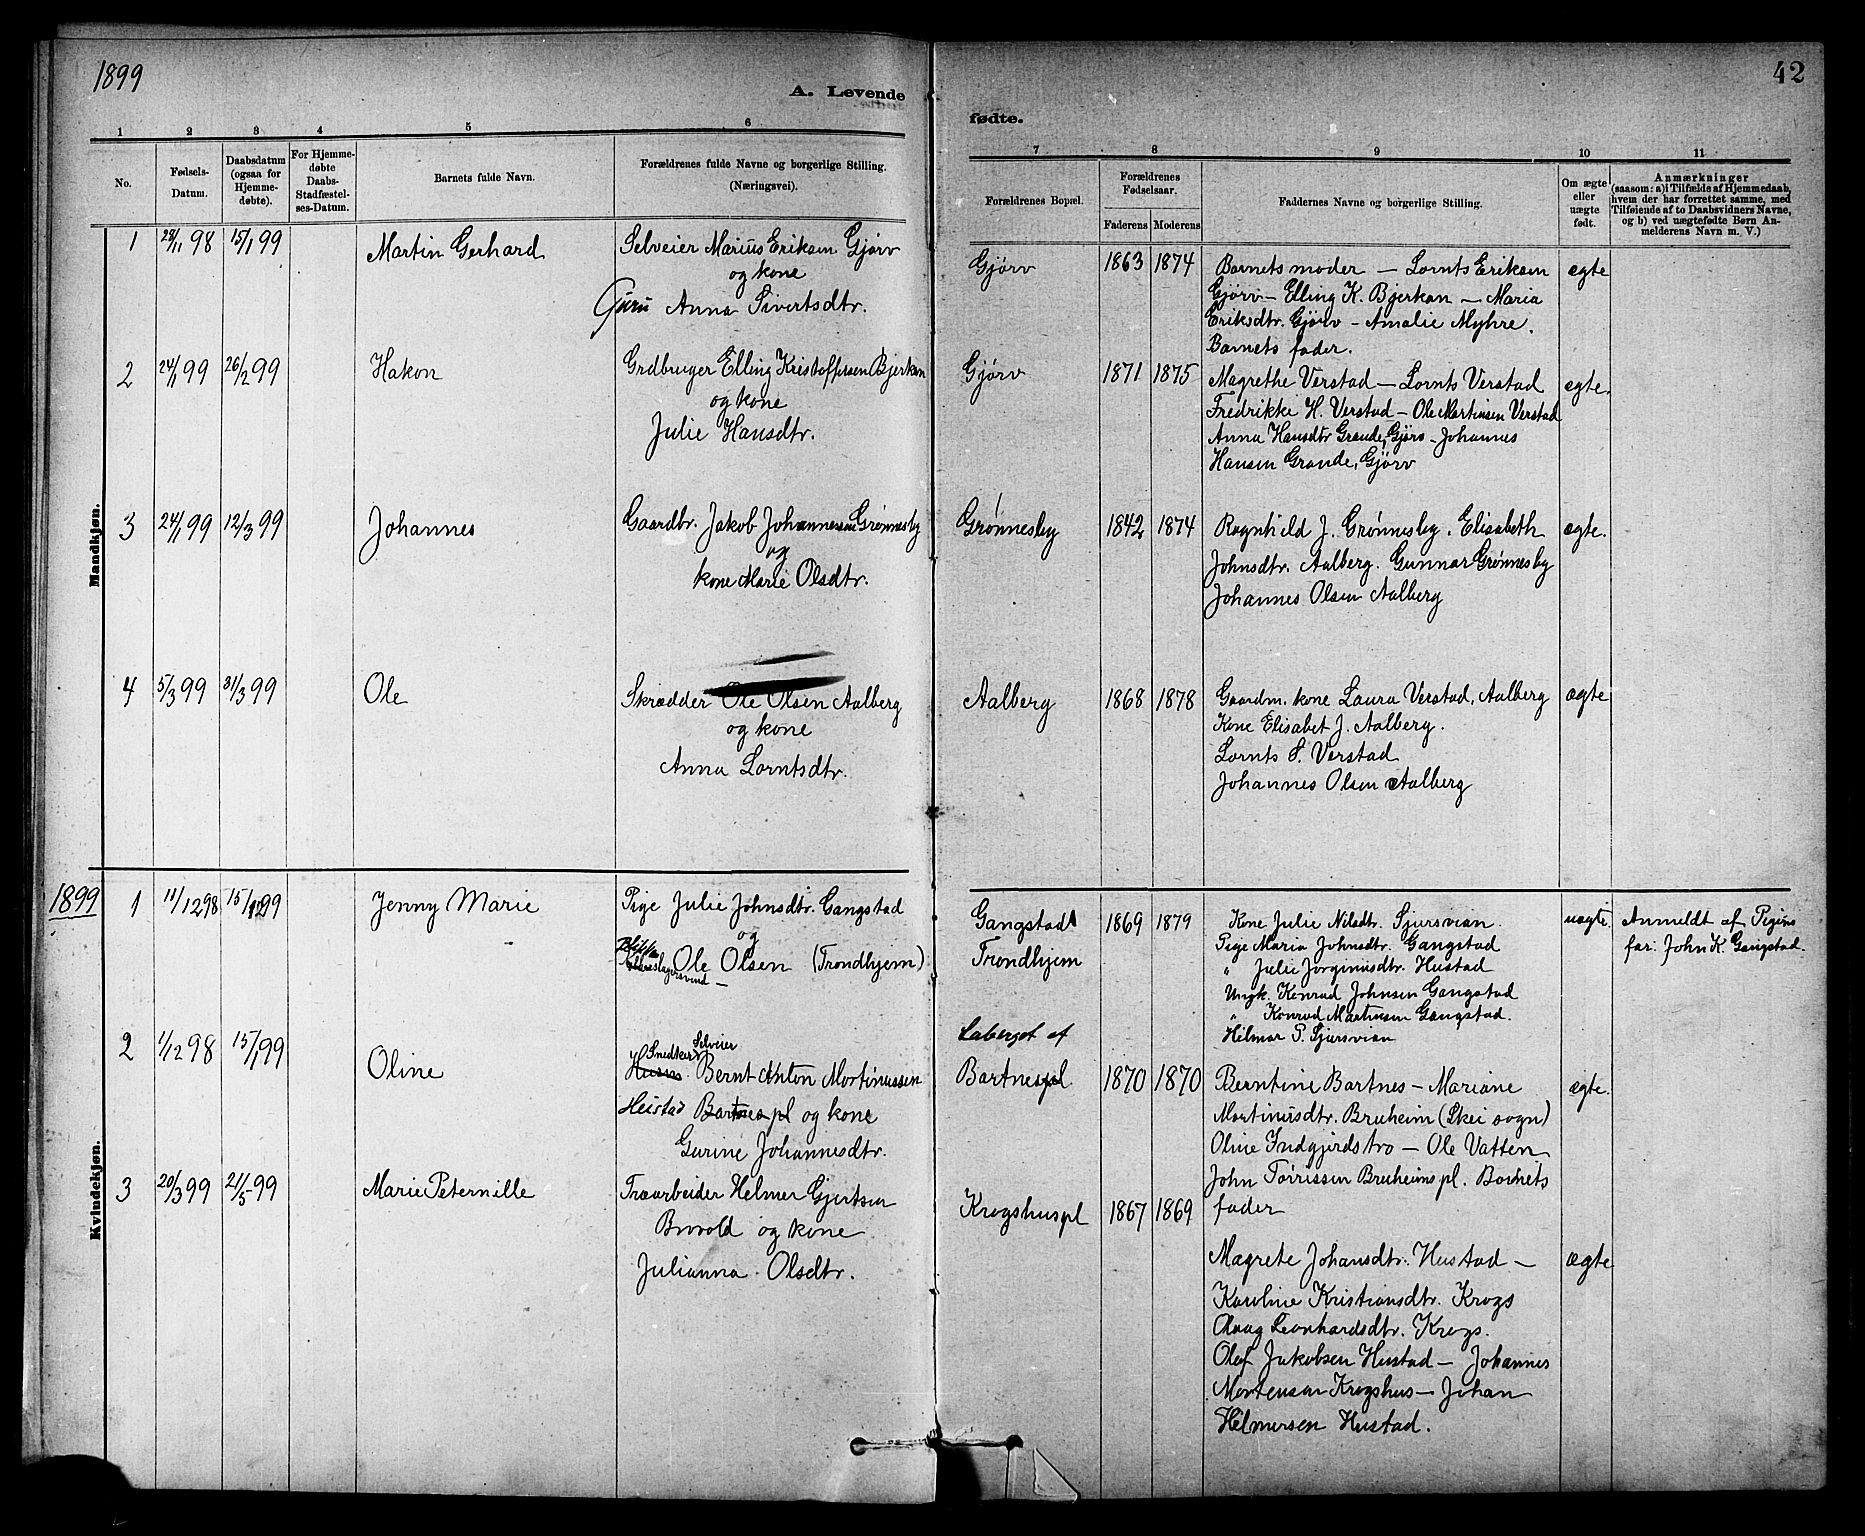 1899
42
A. Levende
fødte.
1 2 3 4 5 6 7 8 9 10 11
No.
Fødsels-
Datum.
Daabsdatum
(ogsaa for
Hjemme-
døbte).
For Hjemme-
døbte
Daabs-
Stadfæstel-
ses-Datum.
Barnets fulde Navn.
Forældrenes fulde Navne og borgerlige Stilling.
(Næringsvei).
Forældrenes Bopæl.
Forældrenes
Fødselsaar.
Faderens Moderens
Faddernes Navne og borgerlige Stilling.
Om ægte
eller
uægte
født.
Anmærkninger
(saasom: a) i Tilfælde af Hjemmedaab,
hvem der har forrettet samme, med
Tilføiende af to Daabsvidners Navne,
og b) ved uægtefødte Børn An-
melderens Navn m. V.)
Mandkjøn.
1 28/11 98 15/1 99 Martin Gerhard
Selveier Marius Eriksen Gjørv
og kone
Guru Anna Sivertsdtr.
Gjørv 1863 1874
Barnets moder — Lornts Eriksen
Gjørv — Elling K. Bjerkan — Maria
Eriksdtr. Gjørv — Amalie Myhre.
Barnets fader.
ægte
2 24/1 99 26/2 99 Hakon
Grdbruger Elling Kristoffersen Bjerkan
og kone
Julie Hansdtr.
Gjørv 1871 1875
Magrethe Verstad — Lornts Verstad
Fredrikke H. Verstad — Ole Martinsen Verstad
Anna Hansdtr Grande, Gjørv — Johannes
Hansen Grande, Gjørv
ægte.
3 24/1 99 12/3 99 Johannes
Gaardbr. Jakob Johannessen Grønnesby
og
kone Marie Olsdtr.
Grønnesby 1842 1874
Ragnhild J. Grønnesby. Elisabeth
Johnsdtr. Aalberg. Gunnar Grønnesby
Johannes Olsen Aalberg
ægte.
4 5/3 99 31/3 99 Ole
Skrædder Ole Olsen Aalberg
og kone
Anna Lorntsdtr.
Aalberg 1868 1878
Gaardm. kone Laura Verstad, Aalberg
Kone Elisabet J. Aalberg.
Lornts S. Verstad
Johannes Olsen Aalberg
ægte
1899
Kvindekjøn.
1 11/12 98 15/1 99 Jenny Marie
Pige Julie Johnsdtr. Gangstad
og
Blikkenslagersvend Ole Olsen (Trondhjem)
Gangstad
Trondhjem
1869 1879
Kone Julie Nilsdtr. Sjursvian.
Pige Maria Johnsdtr. Gangstad
" Julie Jørginusdtr. Hustad
Ungk. Konrad Johnsen Gangstad
" Konrad Martinsen Gangstad.
Hilmar P. Sjursvian
uægte
Anmeldt af Pigens
far: John K. Gangstad.
2 1/12 98 15/1 99 Oline
Snedker Selveier
Husm. Bernt Anton Mortinussen
Hustad Bartnes pl og kone
Gurine Johannesdtr.
Laberget af
Bartnespl 1870 1870
Berntine Bartnes — Mariane
Martinusdtr. Bruheim (Skei sogn)
Oline Indgjerdstro — Ole Vatten
John Tørrissen Bruheims pl. Barnets
fader
ægte.
3 20/3 99 21/5 99 Marie Peternille
Træarbeider Helmer Gjertsen
Brovold og kone
Julianna Olsdtr.
Krogshuspl 1867 1869
Magrete Johansdtr. Hustad —
Karoline Kristiansdtr. Krogs
Olaug Leonhardsdtr. Krogs.
Olaf Jakobsen Hustad — Johannes
Mortensen Krogshus — Johan
Hilmersen Hustad.
ægte